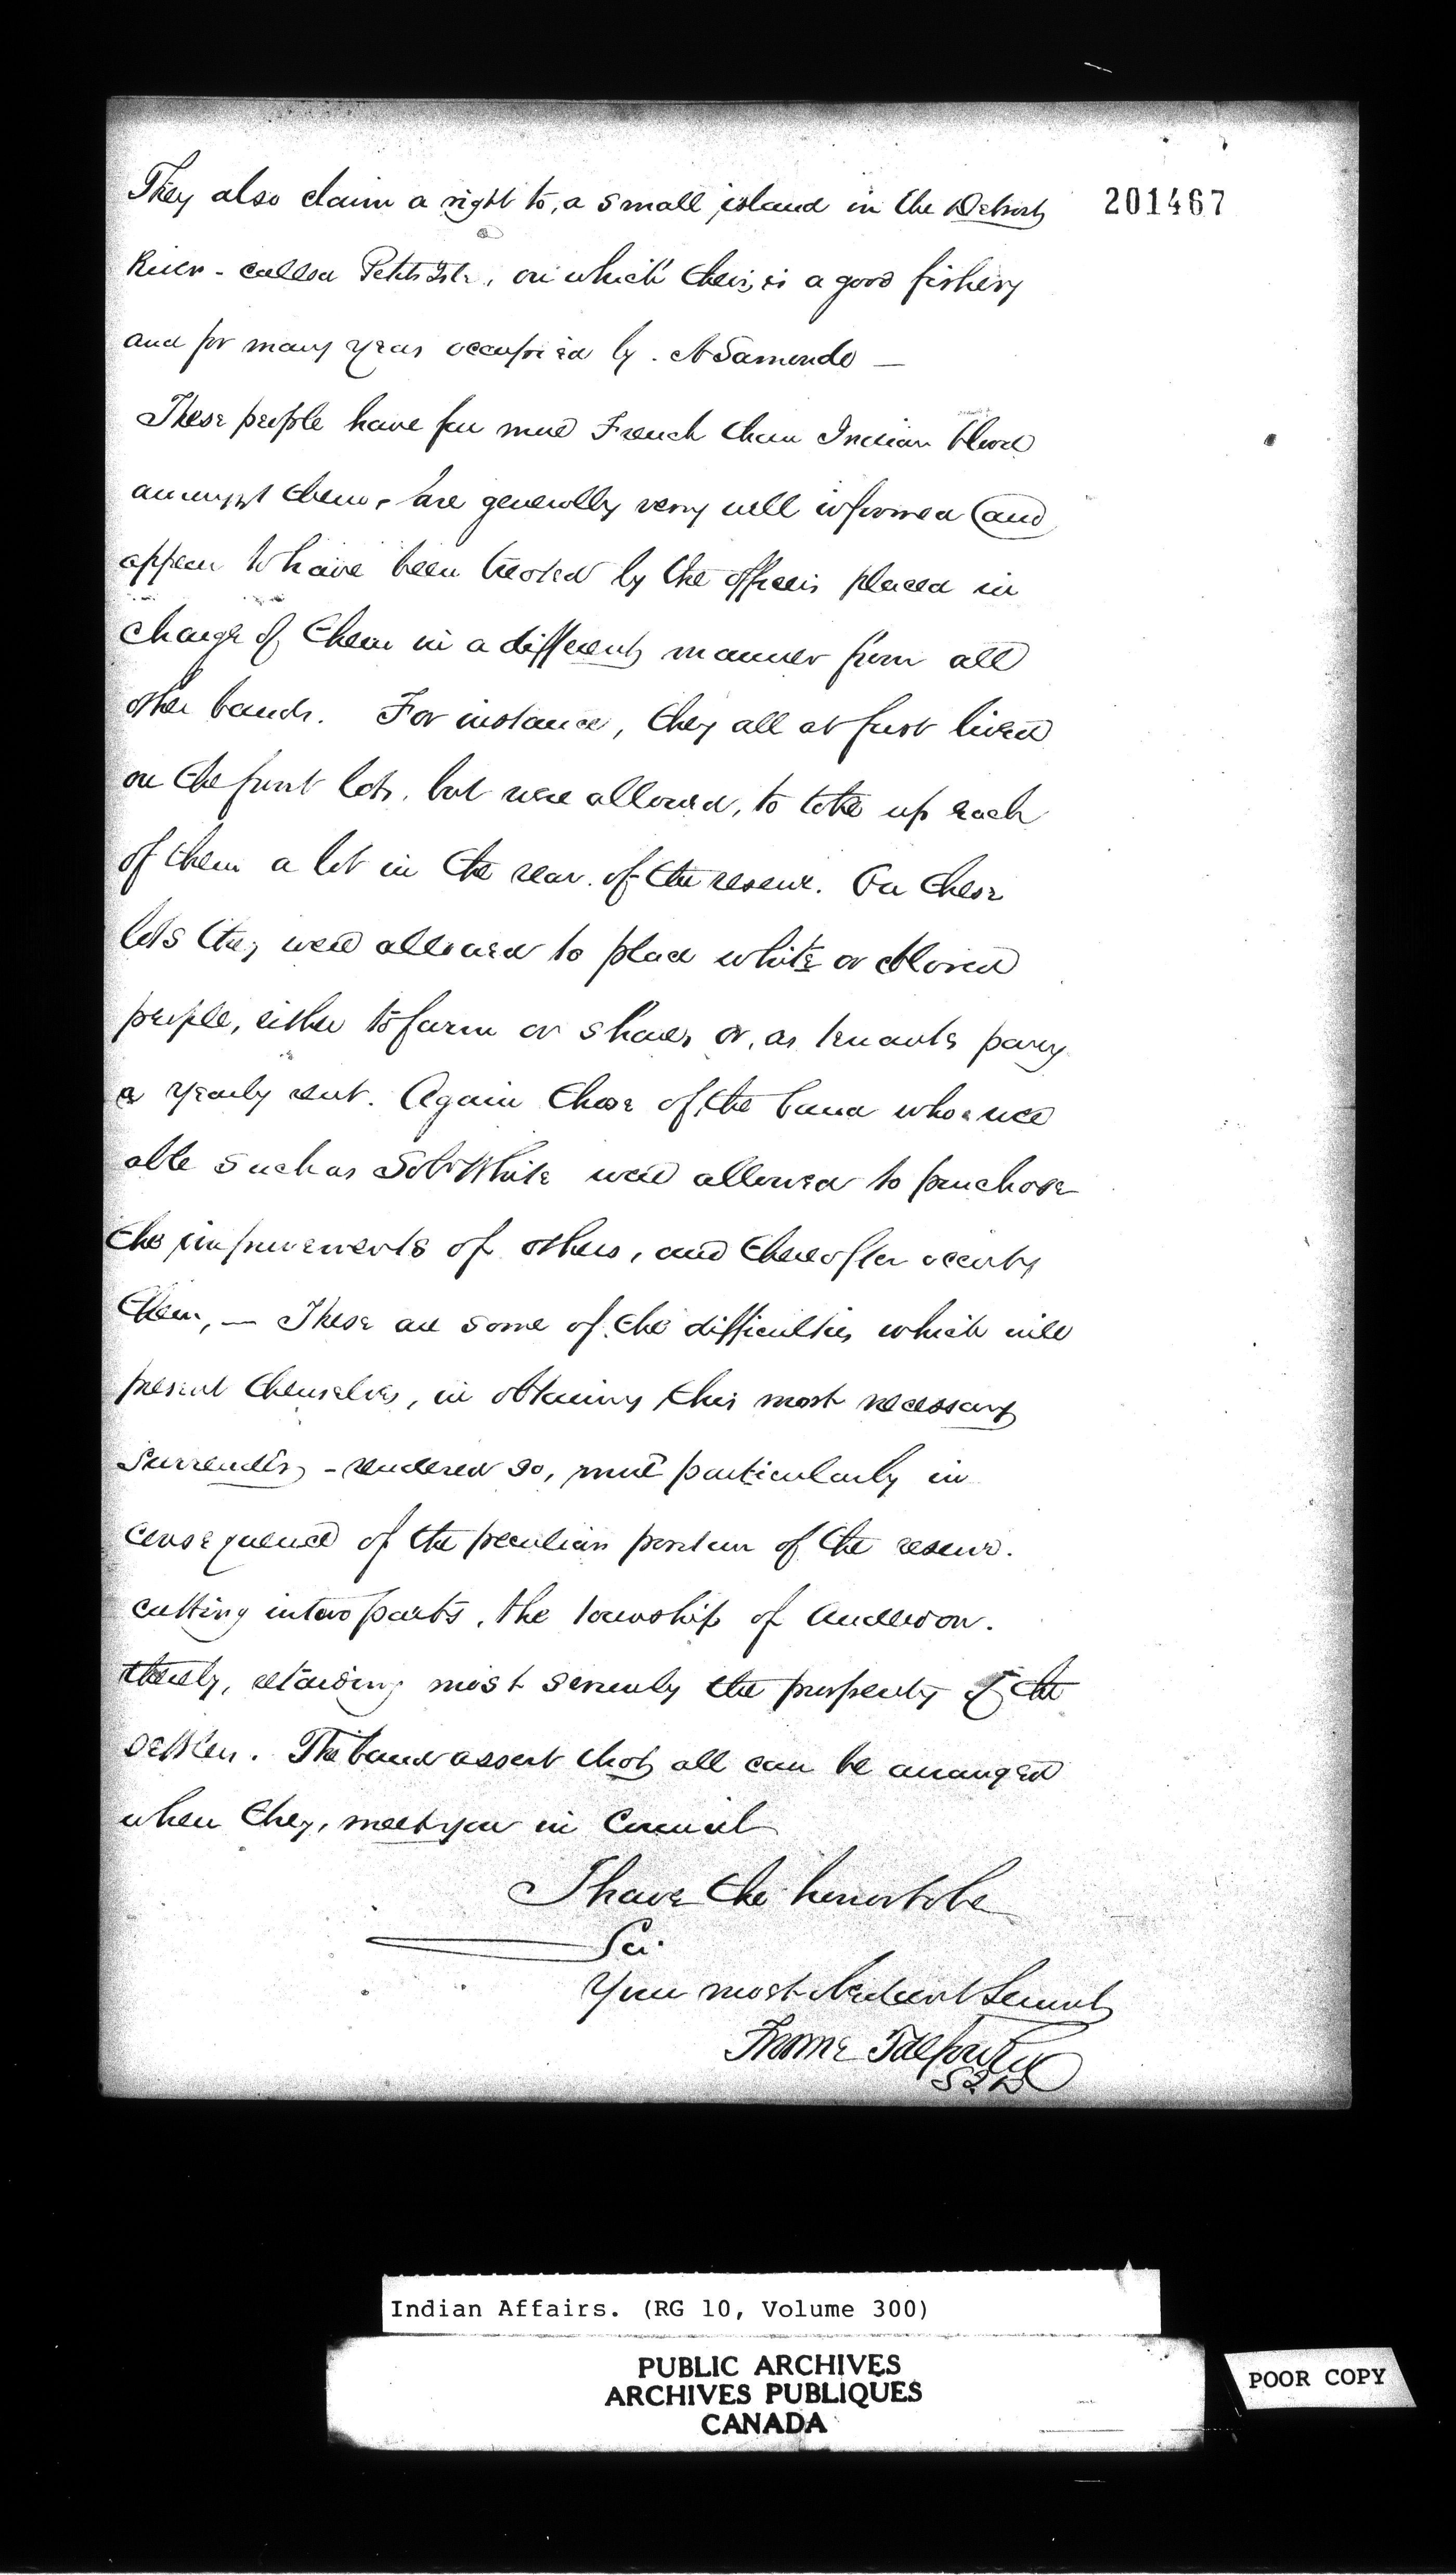 They also claim a right to, a small island in the Detroit
201467
River - called Petit Isle, on which there, is a good fishery
and for many years occupied by. A Samondo —
These people have far more French than Indian blood
amongst them, are generally very well informed and
appear to have been treated by the officers placed in
charge of them in a different manner from all
other bands. For instance, they all at first lived
on the front lots, but were allowed, to take up each
of them a lot in the rear. of the reserve. On these
lots they were allowed to place white or colored
people, either to farm on shares or, as tenants paying
a yearly rent. Again those of the band who were
able such as Solo White were allowed to purchase
the improvements of others, and thereafter occupy
them, — These are some of the difficulties which will
present themselves, in obtaining this most necessary
surrender, - rendered so, more particularly in
consequence of the peculiar position of the reserve.
cutting in two parts, the township of Anderdon.
thereby, retarding most seriously the prosperity of the
settlers. The band assert that all can be arranged
when they, meet you in Council
I have the honor to be
Sir.
Your most obedient Servant
Froome Talfourd
S I A
Indian Affairs. (RG 10, Volume 300)
PUBLIC ARCHIVES
ARCHIVES PUBLIQUES
CANADA
POOR COPY